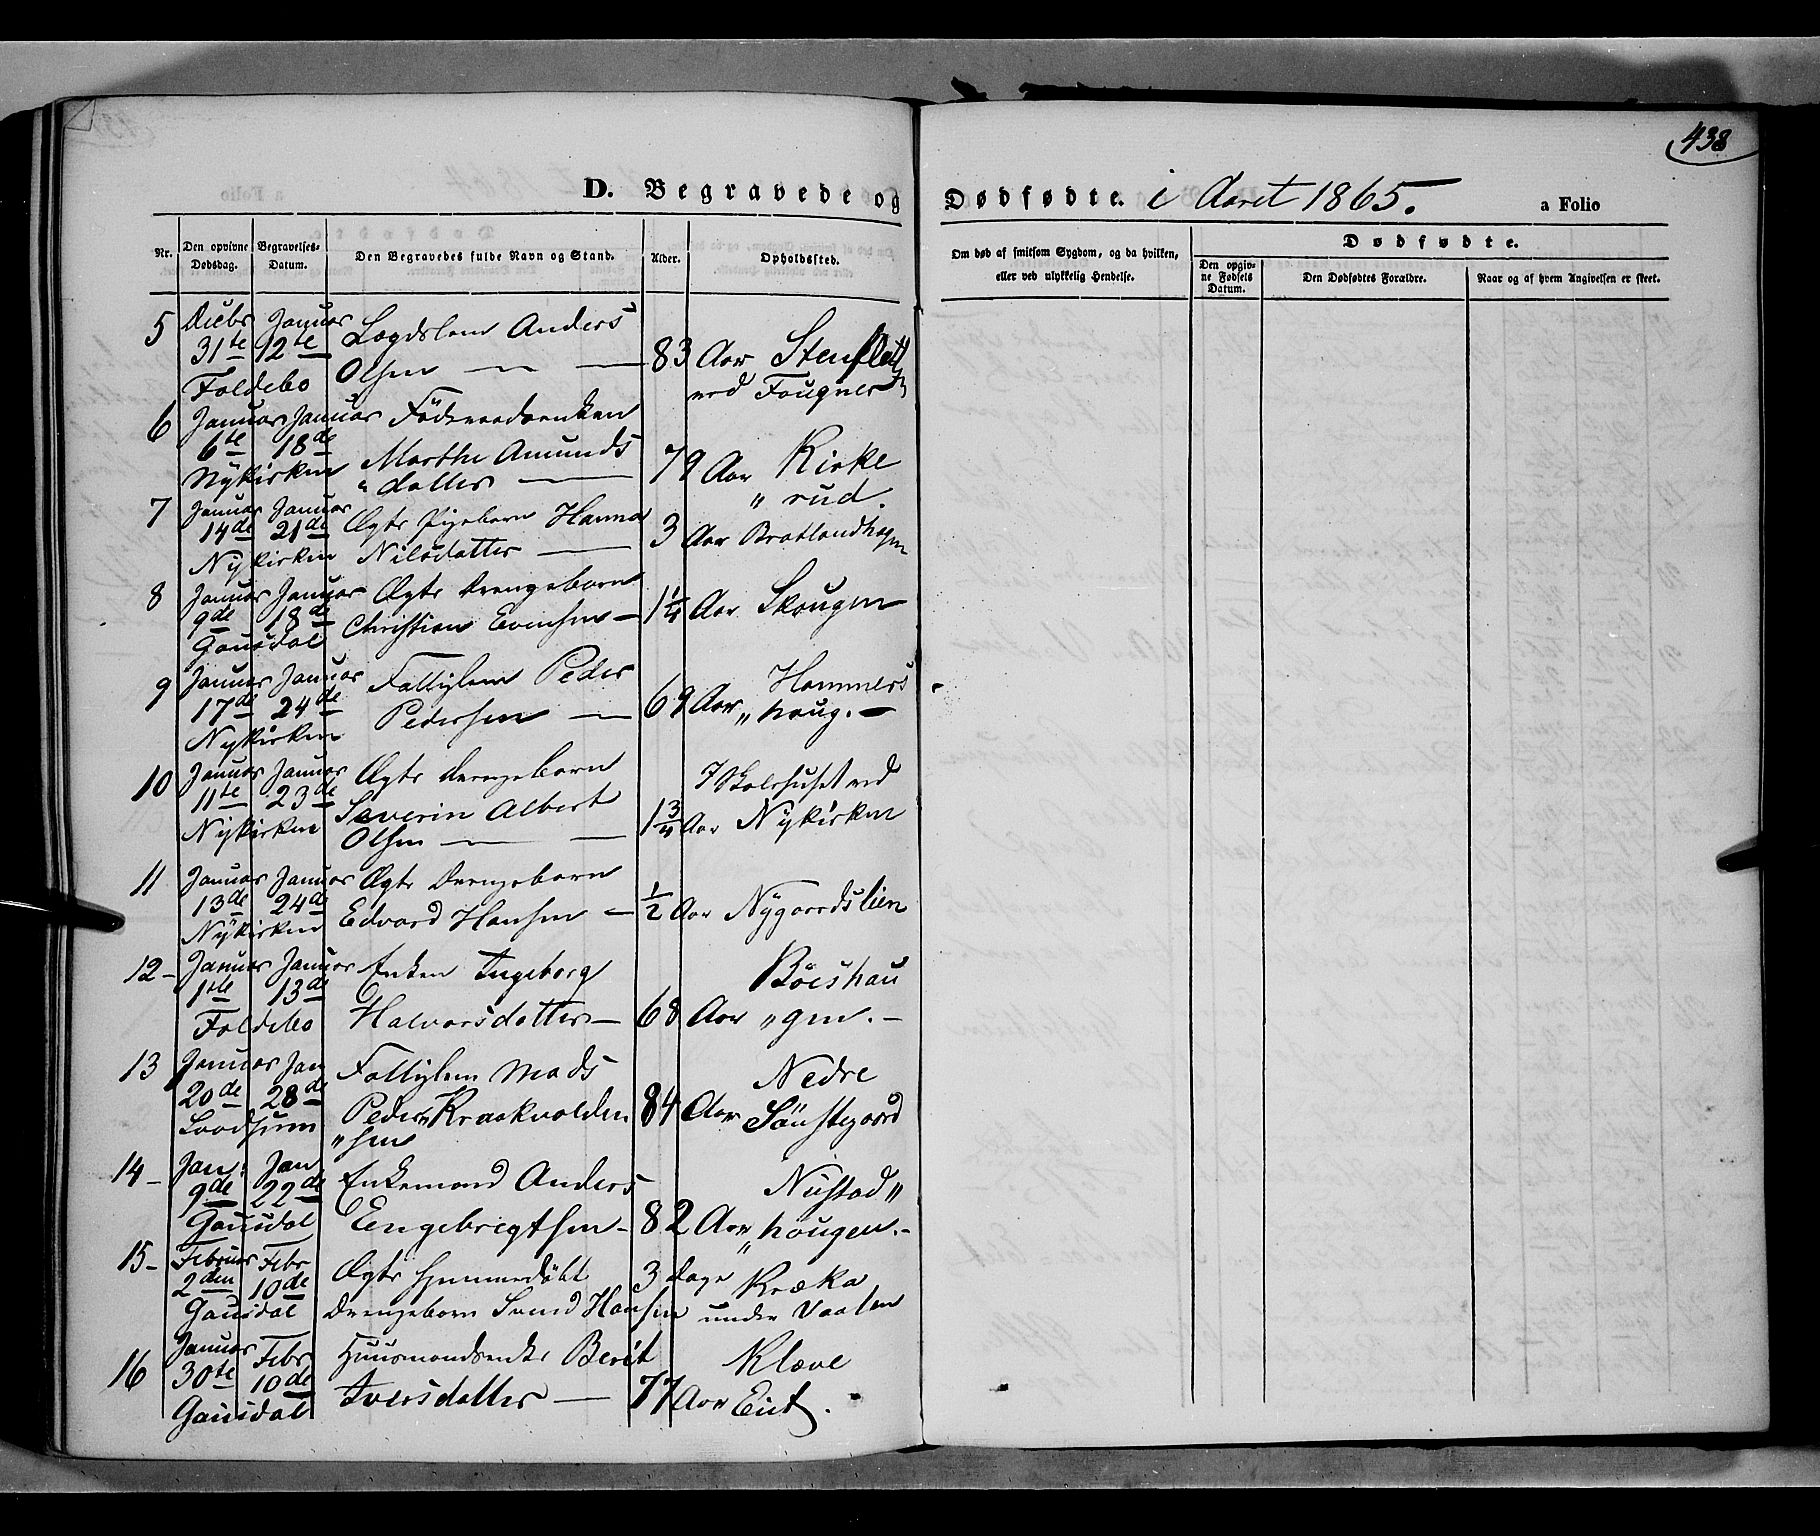 438
D. Begravede og Dødfødte. i Aaret 1865. a Folio
Nr. Den opgivne Dødsdag. Begravelses-Datum. Den Begravedes fulde Navn og Stand. Alder. Opholdssted.
Om død af smitsom Sygdom, og da hvilken, eller ved ulykkelig Hendelse.
Dødfødte.
Den opgivne Fødsels Datum. Den Dødfødtes Forældre. Naar og af hvem Angivelsen er skeet.
5 Decbr Januar Lægdslem Anders
31te 12te Olsen — — 83 Aar Stenslett
Foldebo ved Fougner
6 Januar Januar Föderaadsenken
6te 18de Marthe Amunds 79 Aar Kirke
Nykirken "datter — " rud.
7 Januar Januar Ægte Pigebarn Hanna
14de 21de Nilsdatter — 3 Aar Bratlandhagen
Nykirken
8 Januar Januar Ægte Drengebarn
9de 18de Christian Evensen — 1 1/4 Aar Skougen
Gausdal
9 Januar Januar Fattiglem Peder
17de 24de Pedersen — 69 Aar Hammers
Nykirken "houg. —
10 Januar Januar Ægte Drengebarn
11te 23de Severin Albert Skolehuset ved
Nykirken Olsen — — 1 3/4 Aar Nykirken
11 Januar Januar Ægte Drengebarn
13de 24de Edvard Hansen — 1/2 Aar Nygaardslien
Nykirken
12 - Januar Januar Enken Ingeborg Böeshau
1ste 13de Halvorsdatter — 68 Aar "gen. —
Foldebo
13 Januar Jan Fattiglem Mads Nedre
20de 28de Peder" Kraakvolden 84 Aar Sönstegaard
"sen
14 - Jan: Jan Enkemand Anders Nustad"
9de 22de Engebrigtsen - 82 Aar "hougen. -
Gausdal
15 - Februar Febr Ægte hjemmedöbt 3 dage Kræka
2den 10de Drengebarn Svend Hansen under Vaalen
Gausdal
16 Januar Febr Huusmandsenke Berit Klæve
30te 10de Iversdatter — 77 Aar Eiet.
Gausdal